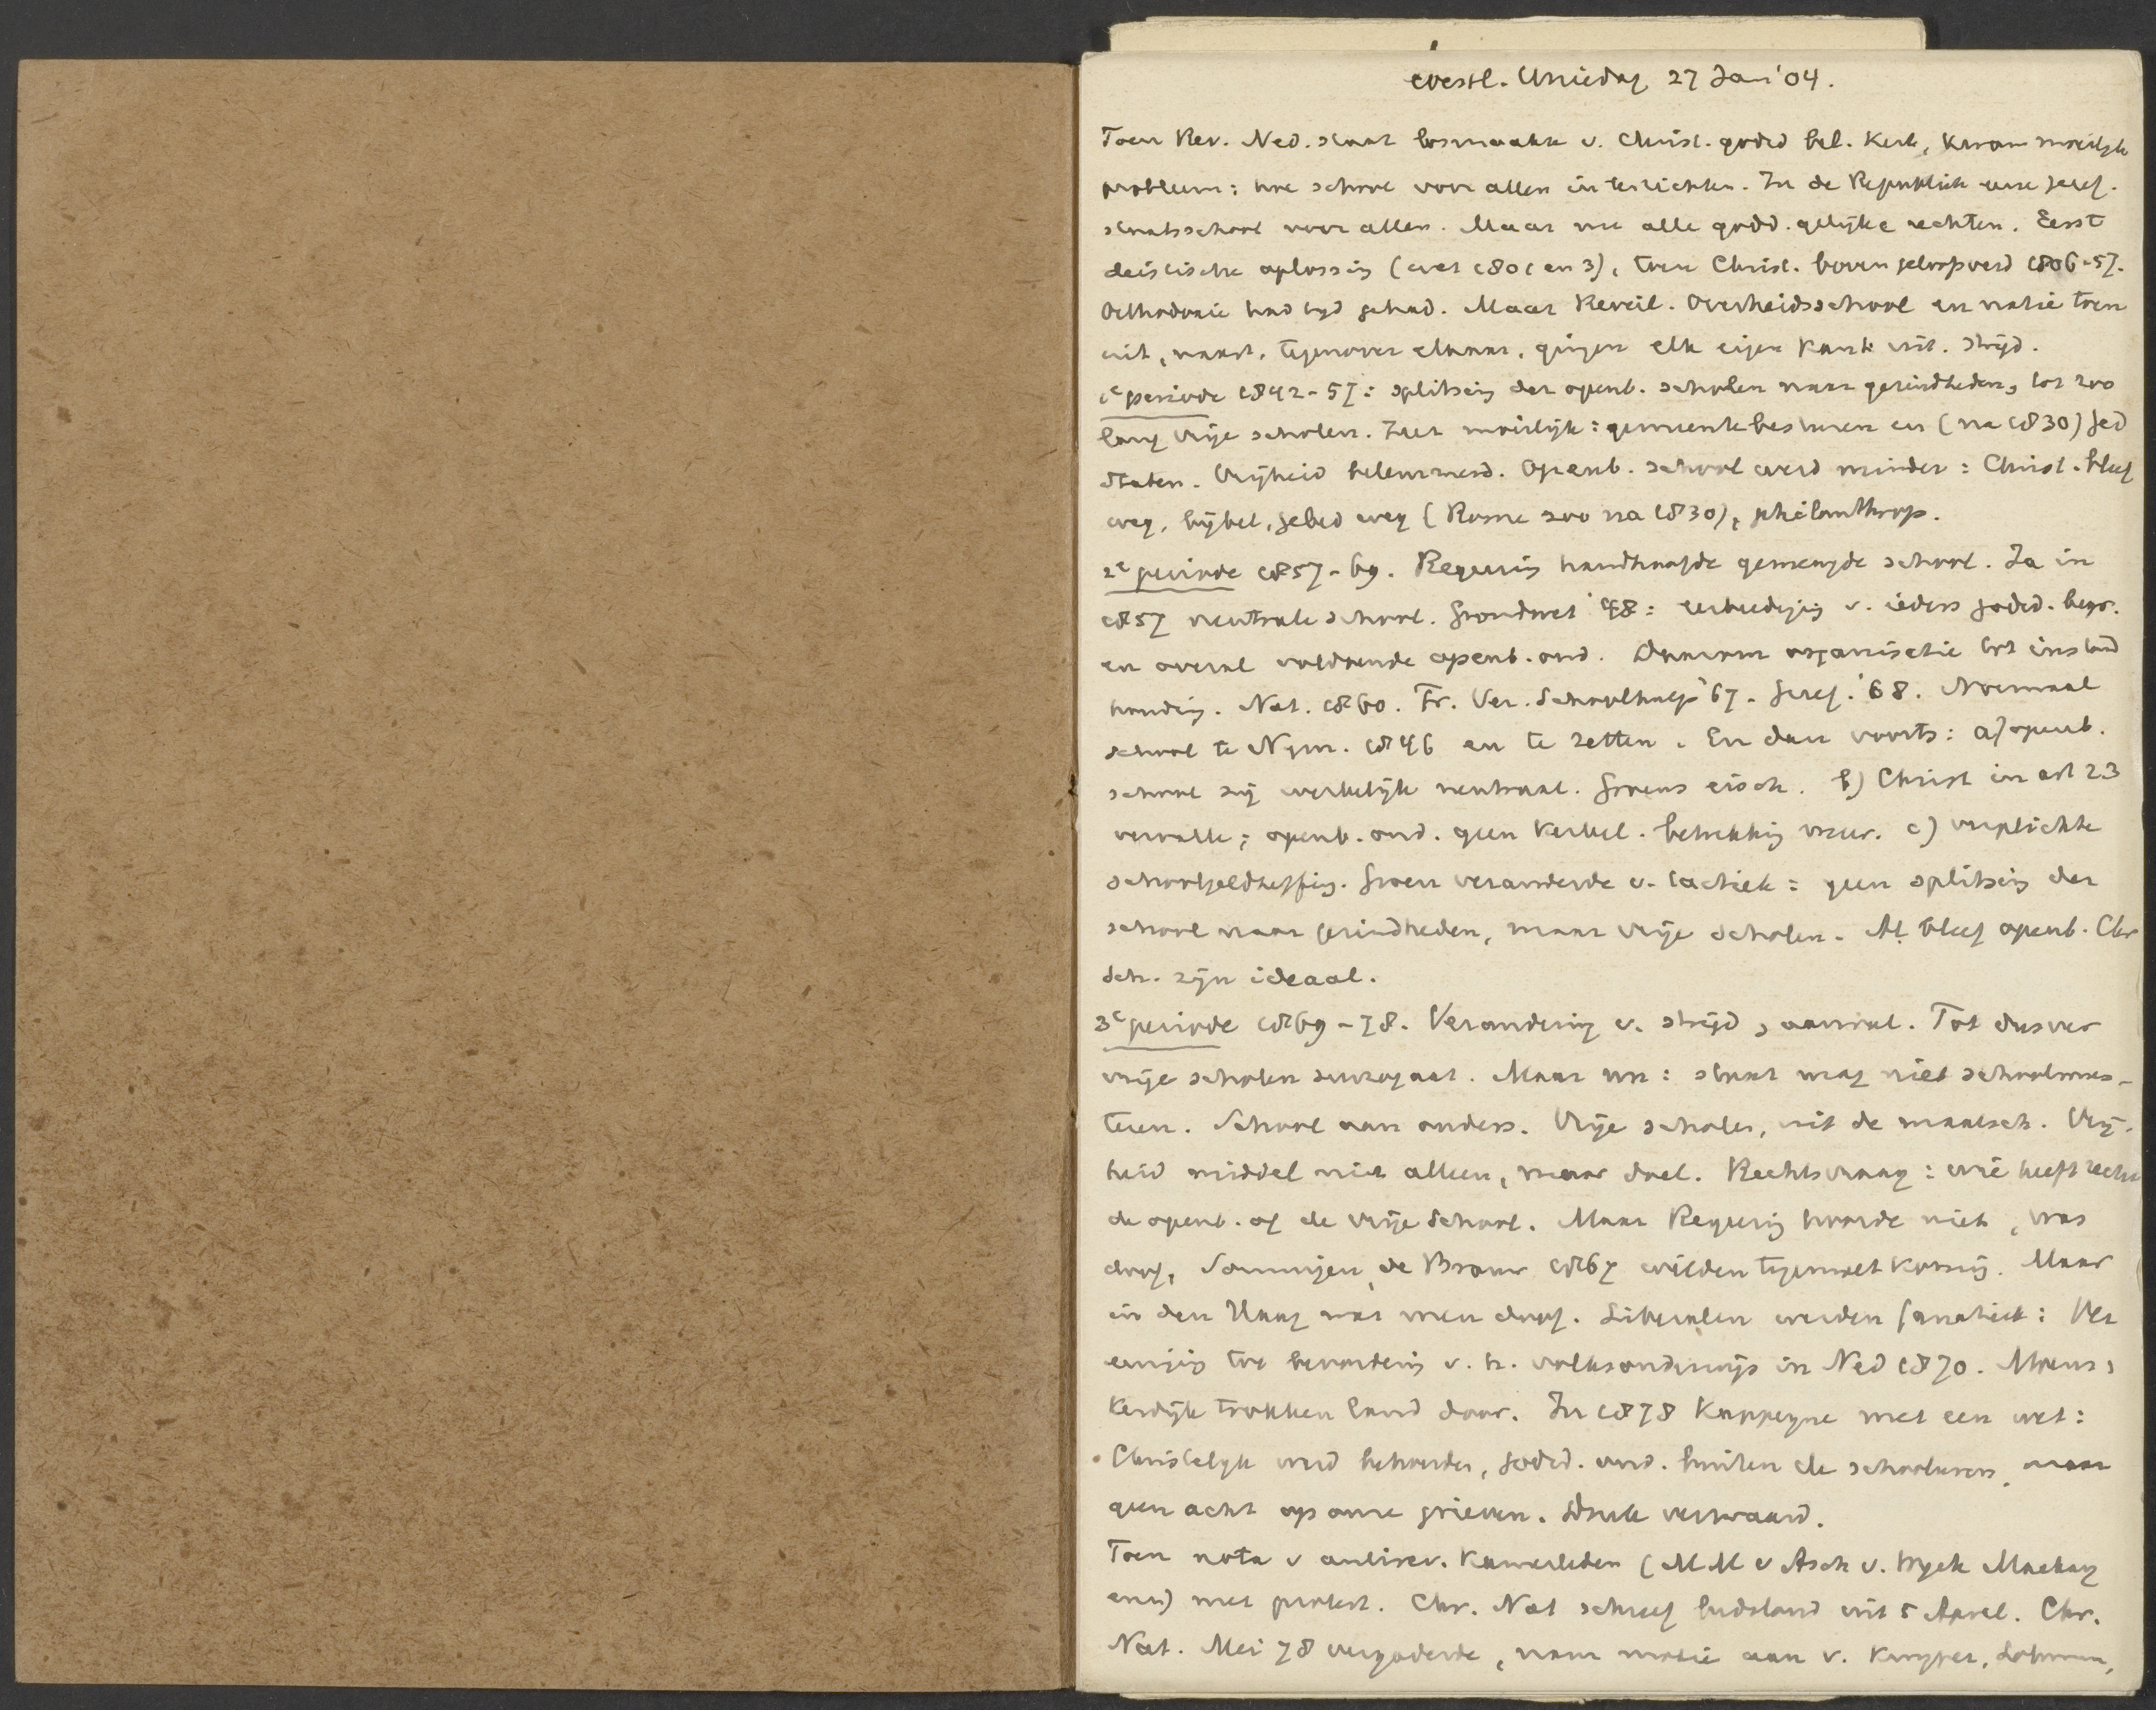 Westl. Uniedag 27 Jan '04.
Toen Rev. Ned. staat losmaakte v. Christ. godsd bel. Kerk, kwam moeilijk
probleem: hoe school voor allen in te richten. In de Republiek eene geref.
staatsschool voor allen. Maar nu alle godsd. gelijke rechten. Eerst
deistische oplossing (wet 1801 en 3), toen Christ. boven geloofverd 1806-57.
Orthodoxie had tijd gehad. Maar Reveil. Overheidsschool en natie toen
uit, naast, tegenover elkaar, gingen elk eigen kant uit. Strijd.
1e periode 1842-57: splitsing der openb. scholen naar gezindheden, tot zoo
lang vrije scholen. Zeer moeilijk: gemeentebesturen en (na 1830) Ged
Staten. Vrijheid belemmerd. Openb. school werd minder: Christ. bleef
weg, bijbel, gebed weg (Rome zoo na 1830), philanthrop.
2e periode 1857-69. Regeering handhaafde gemengde school. Ja in
1857 neutrale school. Grondwet '48: eerbediging v. ieders godsd. begr.
en overal voldoende openb. ond. Daarom organisatie tot instand
houding. Nat. 1860. Fr. Ver. Schoolhulp '67. Geref. '68. Normaal
school te Nijm. 1846 en te Zetten. En dan voorts: a) openb.
school zij werkelijk neutraal. Groens eisch. b) Christ in art 23
vervalle; openb. ond. geen kerkel. betrekking meer. c) verplichte
schoolgeldheffing. Groen veranderde v. tactiek: geen splitsing der
school naar gezindheden, maar vrije scholen. Al bleef openb. Chr
Sch. zijn ideaal.
3e periode 1869-78. Verandering v. strijd, aanval. Tot dusver
vrije scholen surrogaat. Maar nu: staat mag niet schoolmees-
teren. School aan ouders. Vrije scholen, uit de maatsch. Vrij-
heid middel niet alleen, maar doel. Rechtsvraag: wie heeft recht
de openb. of de vrije School. Maar Regeering hoorde niet, was
doof. Sommigen, de Brauw 1867 wilden tegemoetkoming. Maar
in den Haag was men doof. Liberalen werden fanatiek: Ver
eeniging tot bevordering v. h. volksonderwijs in Ned 1870. Moens,
Kerdijk trokken land door. In 1878 Kappeyne met een wet:
Christelijk werd behouden, godsd. ond. buiten de schooluren, maar
geen acht op onze grieven. Druk verzwaard.
Toen nota v antirev. Kamerleden (MM v Asch v. Wyck Mackay
enz) met protest. Chr. Nat schreef bidstond uit 5 April. Chr.
Nat. Mei 78 vergaderde, nam motie aan v. Kuyper, Lohman,